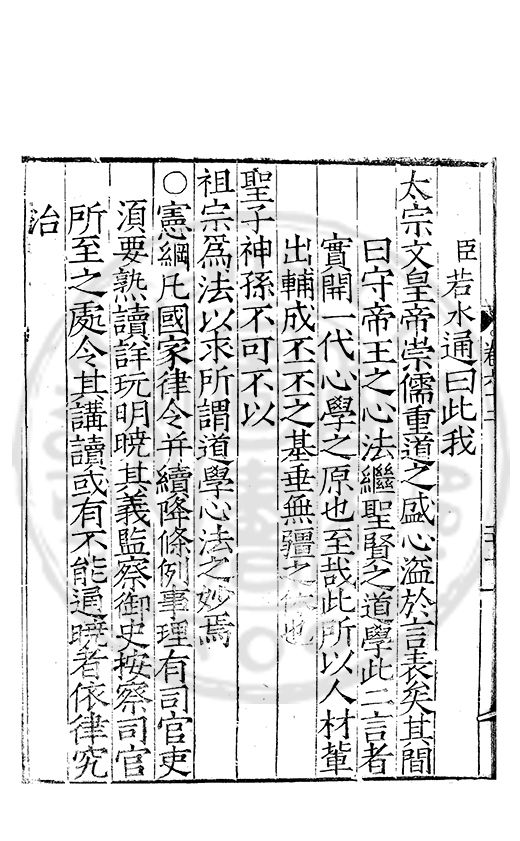 臣若水通曰此我
太宗文皇帝崇儒重道之盛心溢於言表矣其間
曰守帝王之心法繼聖賢之道學此二言者
實開一代心學之原也至哉此所以人材輩
出輔成丕丕之基垂無疆之休也
聖子神孫不可不以
祖宗為法以求所謂道學心法之妙焉
○憲綱凡國家律令并續降條例事理有司官吏
須要熟讀詳玩明曉其義監察御史按察司官
所至之處令其講讀或有不能通曉者依律究
治